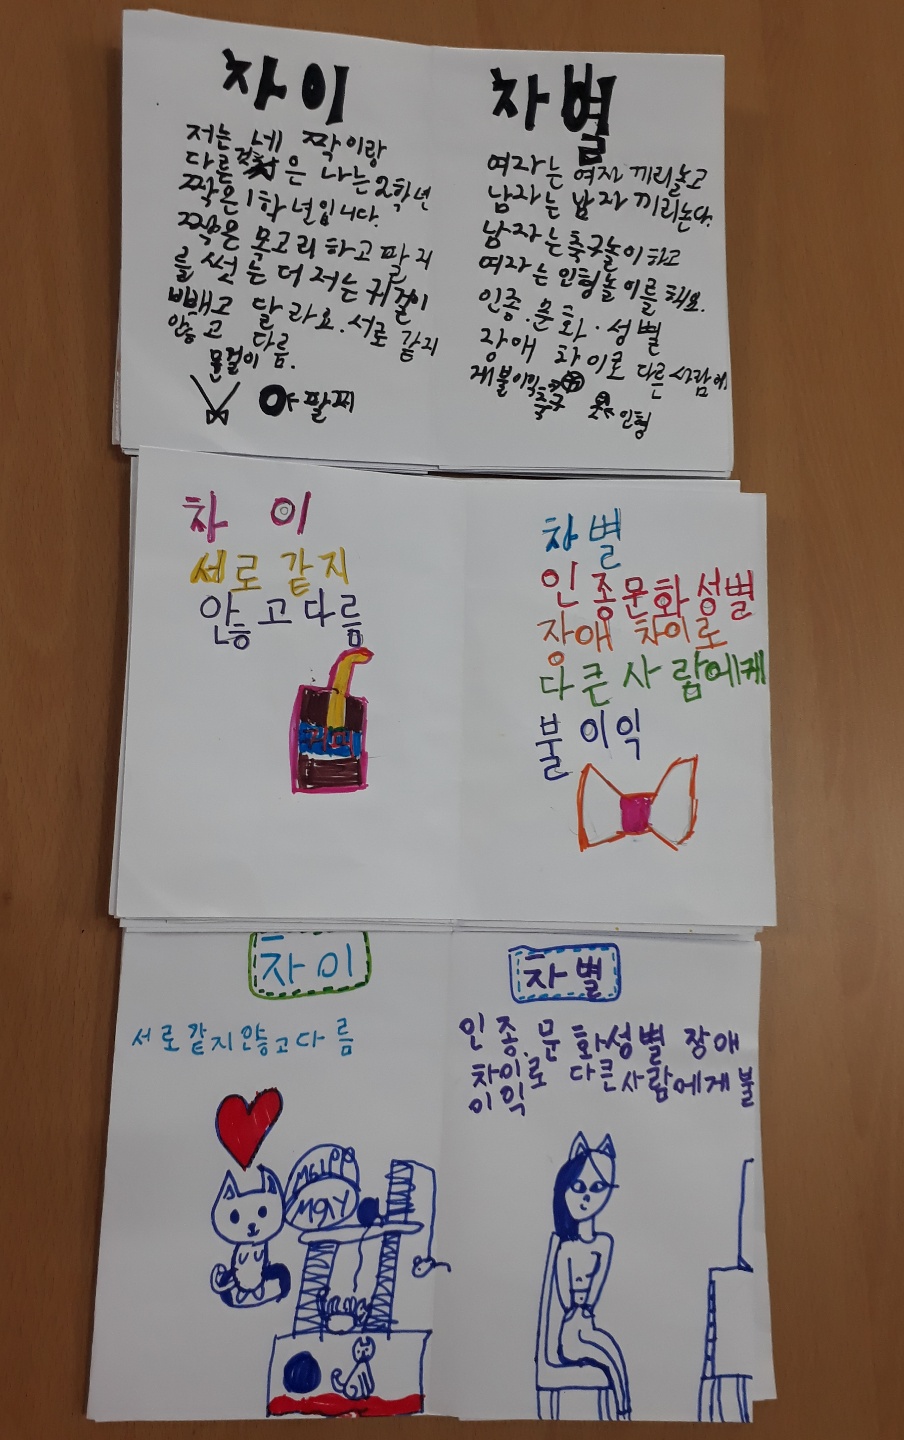 차이
저는 네 짝이랑
다른 은 나는 2학년
짝은 1학년입니다.
짝은 목고리하고 팔지
를 썻는데 저는 귀걸이
빼고 달라요. 서로 같지
안흥고 다름
물걸이.
팔찌
차별
여자는 여자끼리놀고
남자는 남자끼리논다.
남자는축구놀이하고
여자는 인형놀이를 해요.
인종.문화.성별
장애 차이로 다른사람에
게불이익
축구
인형
차이
서로 같지
안흥고다름
차별
인종문화성별
장애 차이로
다른사람에게
불이익
차이
서로같지안흥고다름
차별
인종.문화성별 장애
차이로 다른사람에게불
이익